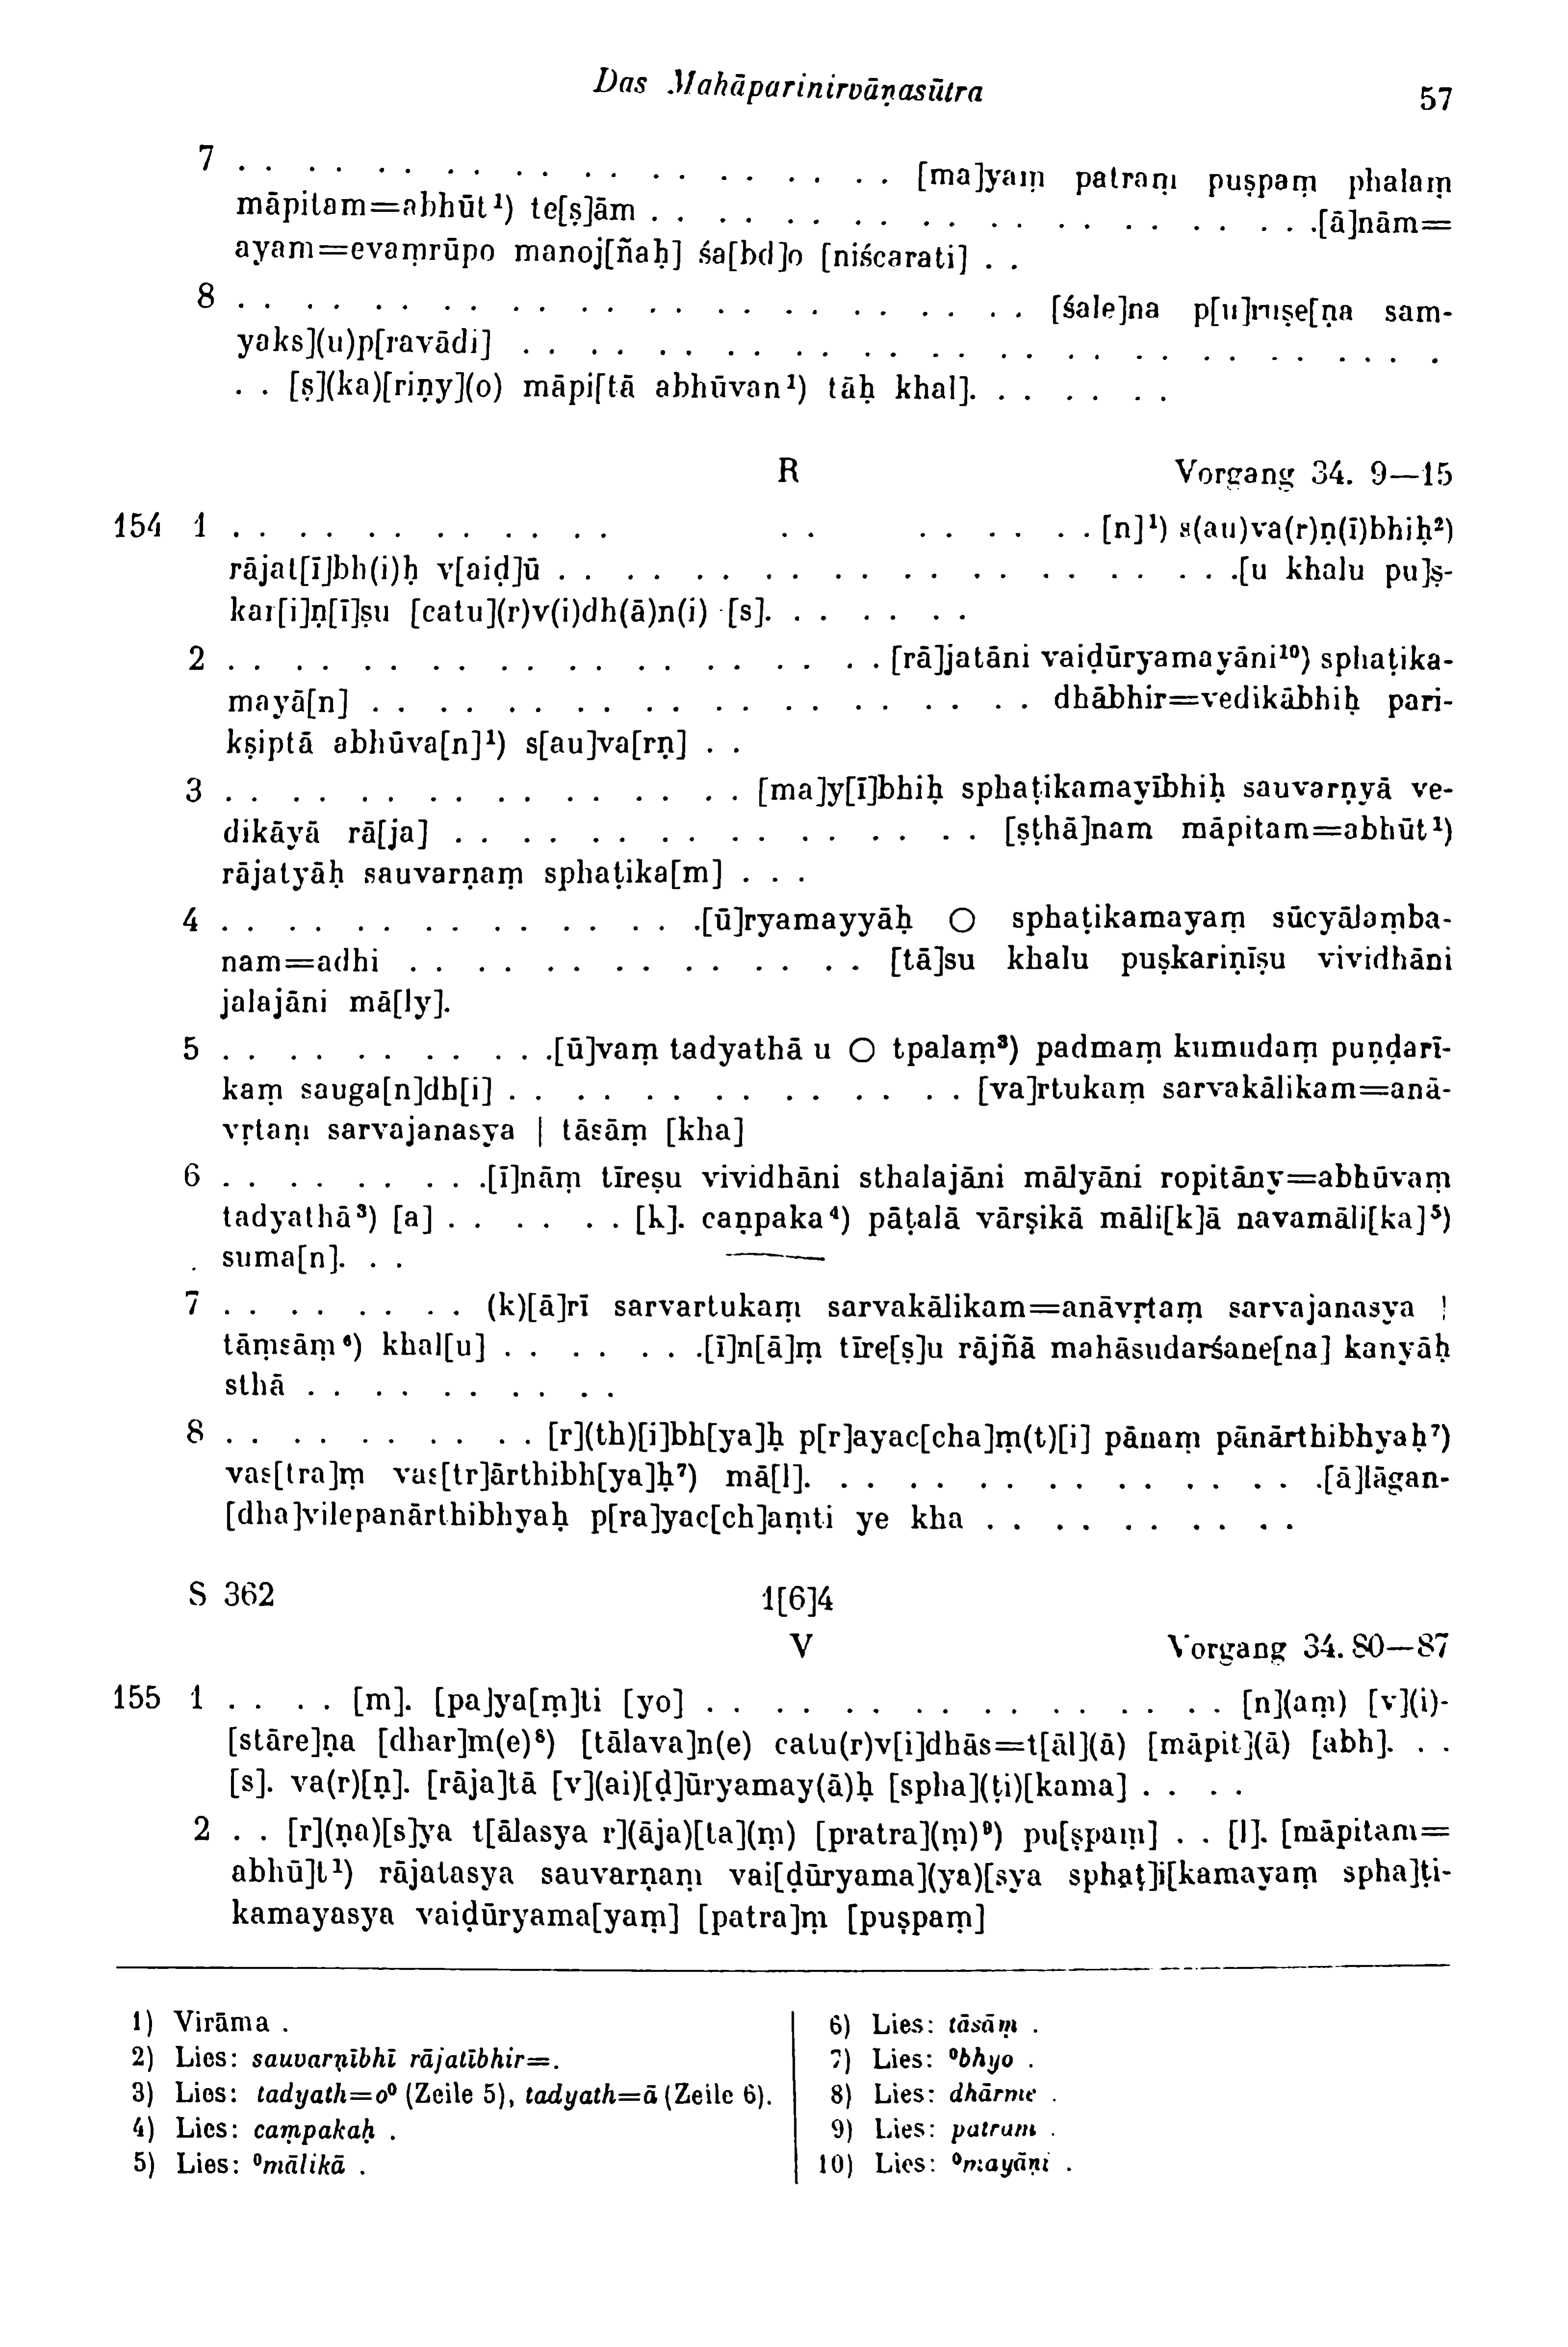 Das Mahāparinirvāṇasūtra 57
7 . . . . . . . . . . . . . . . . . . . . [ma]yaṃ patraṃ puṣpaṃ phalaṃ
māpitam=abhūt¹) te[ṣ]ām . . . . . . . . . . . . . . . . . . . .[ā]nām=
ayam=evaṃrūpo manoj[ñaḥ] śa[bd]o [niścarati] . .
8 . . . . . . . . . . . . . . . . . . . . . . . . [śale]na p[u]ruṣe[ṇa sam-
yaks](u)p[ravādi] . . . . . . . . . . . . . . . . . . . . . . . . . . .
. . [ṣ](ka)[riṇy](o) māpi[tā abhūvan¹) tāḥ khal]. . . . . . .
R Vorgang 34. 9—15
154 1 . . . . . . . . . . . . . . . . . . . . [n]¹) s(au)va(r)ṇ(ī)bhiḥ²)
rājat[ī]bh(i)ḥ v[aiḍ]ū . . . . . . . . . . . . . . . . . . . . .[u khalu pu]ṣ-
kar[i]ṇ[ī]ṣu [catu](r)v(i)dh(ā)n(i) [s]. . . . . . .
2 . . . . . . . . . . . . . . . . . . . . [rā]jatāni vaiḍūryamayāni¹⁰) sphaṭika-
mayā[n] . . . . . . . . . . . . . . . . . . . . dhābhir=vedikābhiḥ pari-
kṣiptā abhūva[n]¹) s[au]va[rṇ] . .
3 . . . . . . . . . . . . . . . . [ma]y[ī]bhiḥ sphaṭikamayībhiḥ sauvarṇyā ve-
dikāyā rā[ja] . . . . . . . . . . . . . . . . [ṣṭhā]nam māpitam=abhūt¹)
rājatyāḥ sauvarṇaṃ sphaṭika[m] . . .
4 . . . . . . . . . . . . . . .[ū]ryamayyāḥ ○ sphaṭikamayaṃ sūcyālaṃba-
nam=adhi . . . . . . . . . . . . . . [tā]su khalu puṣkariṇīṣu vividhāni
jalajāni mā[ly].
5 . . . . . . . . . . .[ū]vaṃ tadyathā u ○ tpalaṃ³) padmaṃ kumudaṃ puṇḍarī-
kaṃ sauga[n]dh[i] . . . . . . . . . . . . . . [va]rtukaṃ sarvakālikam=anā-
vṛtaṃ sarvajanasya | tāsāṃ [kha]
6 . . . . . . . . .[ī]nāṃ tīreṣu vividhāni sthalajāni mālyāni ropitāny=abhūvaṃ
tadyathā³) [a] . . . . . . [k]. caṇpaka⁴) pāṭalā vārṣikā māli[k]ā navamāli[ka]⁵)
suma[n]. . .
7 . . . . . . . . (k)[ā]rī sarvartukaṃ sarvakālikam=anāvṛtaṃ sarvajanasya |
tāṃsāṃ⁶) khal[u] . . . . . . .[ī]n[ā]ṃ tīre[ṣ]u rājñā mahāsudarśane[na] kanyāḥ
sthā . . . . . . . . . .
8 . . . . . . . . . . [r](th)[i]bh[ya]ḥ p[r]ayac[cha]ṃ(t)[i] pānaṃ pānārthibhyaḥ⁷)
vas[tra]ṃ vas[tr]ārthibh[ya]ḥ⁷) mā[l]. . . . . . . . . . . . . . . .[ā]lāgan-
[dha]vilepanārthibhyaḥ p[ra]yac[ch]aṃti ye kha . . . . . . . . . .
S 362 1[6]4
V Vorgang 34. 80—87
155 1 . . . . [m]. [pa]ya[ṃ]ti [yo] . . . . . . . . . . . . . . . . [n](aṃ) [v](i)-
[stāre]ṇa [dhar]m(e)⁸) [tālava]n(e) catu(r)v[i]dhās=t[āl](ā) [māpit](ā) [abh]. . .
[s]. va(r)[ṇ]. [rāja]tā [v](ai)[ḍ]ūryamay(ā)ḥ [spha](ṭi)[kama] . . . .
2 . . [r](ṇa)[s]ya t[ālasya r](āja)[ta](ṃ) [pratra](ṃ)⁹) pu[ṣpaṃ] . . [l]. [māpitam=
abhū]t¹) rājatasya sauvarṇaṃ vai[ḍūryama](ya)[sya sphaṭ]i[kamayaṃ spha]ṭi-
kamayasya vaiḍūryama[yaṃ] [patra]ṃ [puṣpaṃ]
1) Virāma .
2) Lies: sauvarṇībhī rājatībhir=.
3) Lies: tadyath=o⁰ (Zeile 5), tadyath=ā (Zeile 6).
4) Lies: caṃpakaḥ .
5) Lies: ⁰mālikā .
6) Lies: tāsāṃ .
7) Lies: ⁰bhyo .
8) Lies: dhārme .
9) Lies: patraṃ .
10) Lies: ⁰mayāṇi .